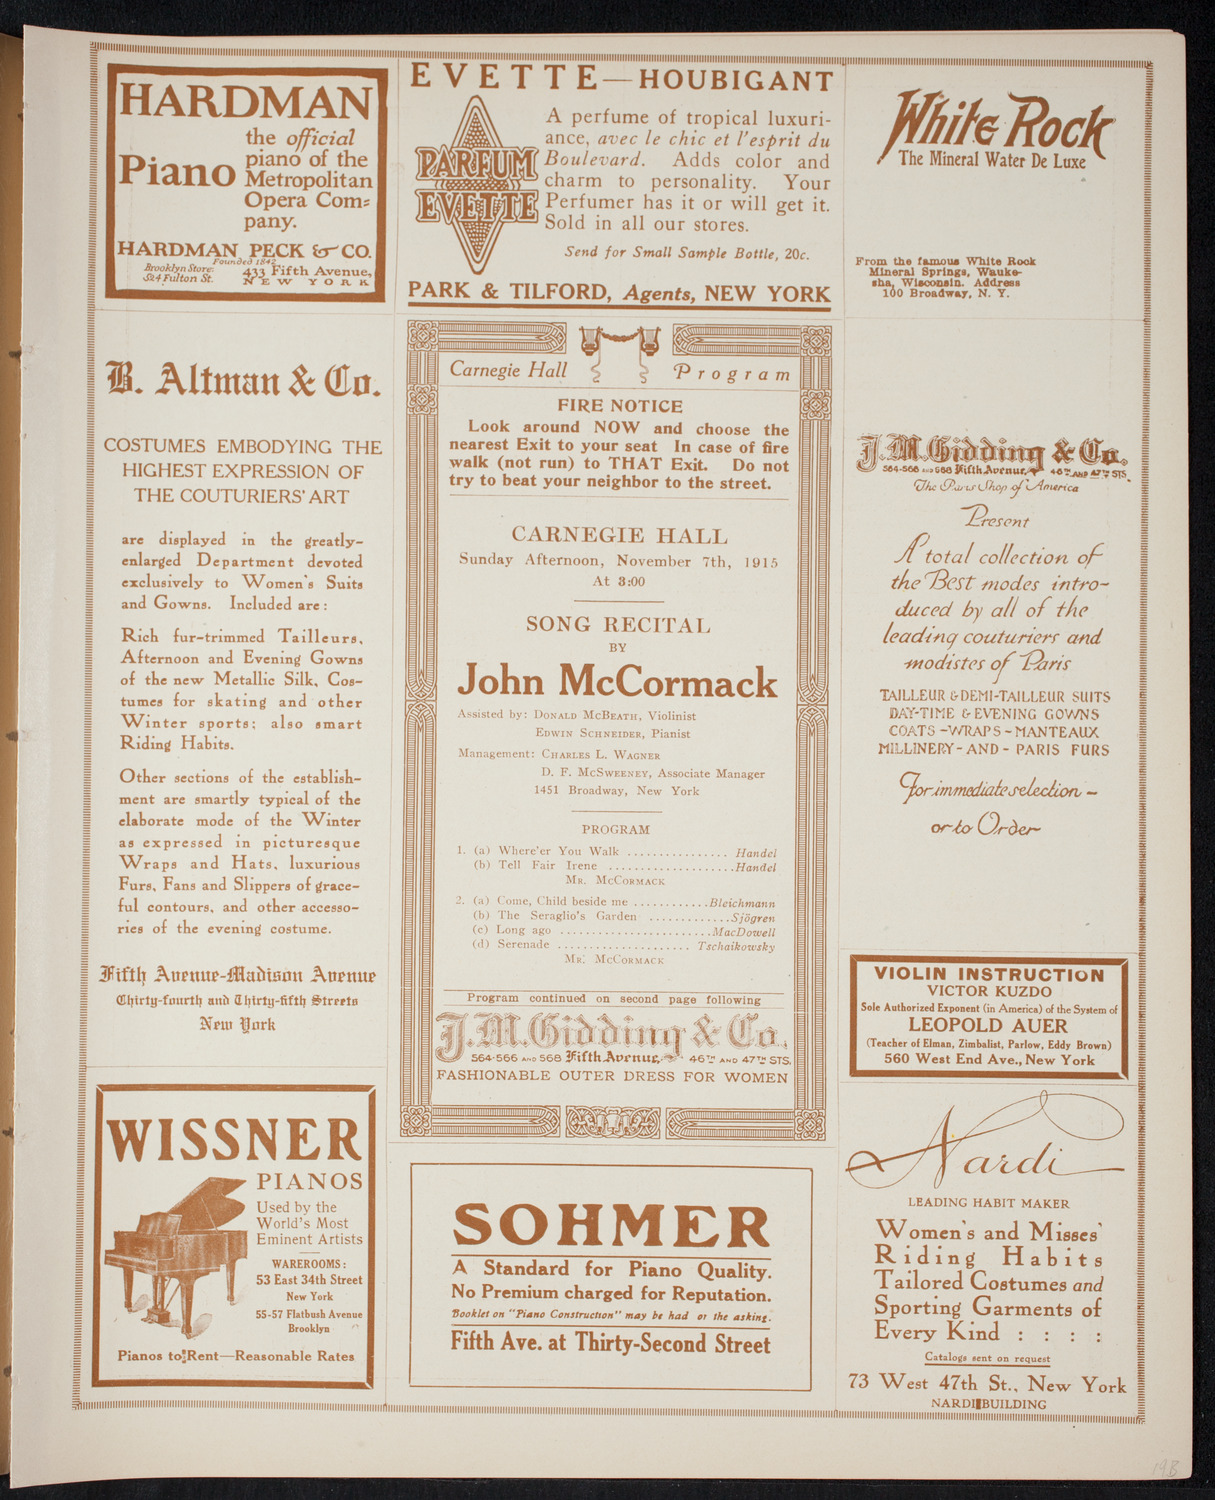 HARDMAN
Piano
the official
piano of the
Metropolitan
Opera Com=
pany.
HARDMAN PECK & CO.
Founded 1842
Brooklyn Store:
524 Fulton St.
433 Fifth Avenue,
NEW YORK
EVETTE—HOUBIGANT
PARFUM
EVETTE
A perfume of tropical luxuri-
ance, avec le chic et l'esprit du
Boulevard. Adds color and
charm to personality. Your
Perfumer has it or will get it.
Sold in all our stores.
Send for Small Sample Bottle, 20c.
PARK & TILFORD, Agents, NEW YORK
White Rock
The Mineral Water De Luxe
From the famous White Rock
Mineral Springs, Wauke-
sha, Wisconsin. Address
100 Broadway, N. Y.
B. Altman & Co.
COSTUMES EMBODYING THE
HIGHEST EXPRESSION OF
THE COUTURIERS' ART
are displayed in the greatly-
enlarged Department devoted
exclusively to Women's Suits
and Gowns. Included are:
Rich fur-trimmed Tailleurs,
Afternoon and Evening Gowns
of the new Metallic Silk, Cos-
tumes for skating and other
Winter sports; also smart
Riding Habits.
Other sections of the establish-
ment are smartly typical of the
elaborate mode of the Winter
as expressed in picturesque
Wraps and Hats, luxurious
Furs, Fans and Slippers of grace-
ful contours, and other accesso-
ries of the evening costume.
Fifth Avenue-Madison Avenue
Thirty-fourth and Thirty-fifth Streets
New York
WISSNER
PIANOS
Used by the
World's Most
Eminent Artists
WAREROOMS:
53 East 34th Street
New York
55-57 Flatbush Avenue
Brooklyn
Pianos to Rent—Reasonable Rates
Carnegie Hall Program
FIRE NOTICE
Look around NOW and choose the
nearest Exit to your seat In case of fire
walk (not run) to THAT Exit. Do not
try to beat your neighbor to the street.
CARNEGIE HALL
Sunday Afternoon, November 7th, 1915
At 3:00
SONG RECITAL
BY
John McCormack
Assisted by: DONALD MCBEATH, Violinist
EDWIN SCHNEIDER, Pianist
Management: CHARLES L. WAGNER
D. F. MCSWEENEY, Associate Manager
1451 Broadway, New York
PROGRAM
1. (a) Where'er You Walk ................ Handel
(b) Tell Fair Irene ....................Handel
MR. MCCORMACK
2. (a) Come, Child beside me ............Bleichmann
(b) The Seraglio's Garden .............Sjögren
(c) Long ago ........................MacDowell
(d) Serenade ..................... Tschaikowsky
MR. MCCORMACK
Program continued on second page following
J.M.Gidding & Co.
564-566 AND 568 Fifth Avenue, 46TH AND 47TH STS.
FASHIONABLE OUTER DRESS FOR WOMEN
SOHMER
A Standard for Piano Quality.
No Premium charged for Reputation.
Booklet on "Piano Construction" may be had or the asking.
Fifth Ave. at Thirty-Second Street
J.M.Gidding & Co.
564-566 AND 568 Fifth Avenue, 46TH AND 47TH STS.
The Paris Shop of America
Present
A total collection of
the Best modes intro-
duced by all of the
leading couturiers and
modistes of Paris
TAILLEUR & DEMI-TAILLEUR SUITS
DAY-TIME & EVENING GOWNS
COATS-WRAPS-MANTEAUX
MILLINERY-AND-PARIS FURS
For immediate selection—
or to Order
VIOLIN INSTRUCTION
VICTOR KUZDO
Sole Authorized Exponent (in America) of the System of
LEOPOLD AUER
(Teacher of Elman, Zimbalist, Parlow, Eddy Brown)
560 West End Ave., New York
Nardi
LEADING HABIT MAKER
Women's and Misses'
Riding Habits
Tailored Costumes and
Sporting Garments of
Every Kind : : : :
Catalogs sent on request
73 West 47th St., New York
NARDI BUILDING
19B